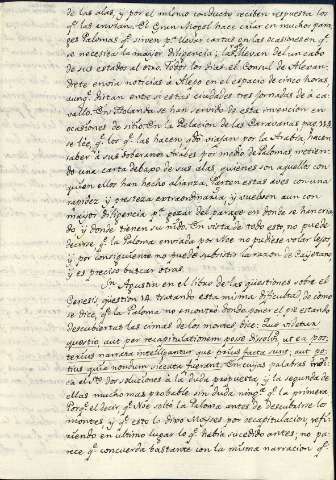 de las alas, y por el mismo conducto reciben respuesta los
q.e las enviaron. El Gran Mogol hace criar en muchos para-
ges Palomas q.e sirven p.a llevar cartas en las ocasiones en q.e
se necesita la mayor diligencia; las llevan del un cabo
de sus estados al otro. Todos los dias el Consul de Alexan-
drete envia noticias a Alepo en el espacio de cinco horas
aunq.e distan entre si estas ciudades tres jornadas de a ca-
vallo. En Holanda se han servido de esta invencion en
ocasiones de sitio. En la Relacion de las Caravanas pag.
se lee q.e los q.e las hacen q.do viajan por la Arabia hacen
saber a sus soberanos Arabes por medio de Palomas metien-
do una carta debajo de sus alas, quienes son aquellos con
quien ellos han hecho alianza. Parten estas aves con una
rapidez y presteza extraordinaria, y vuelven aun con
mayor diligencia p.a gozar del parage en donde se han cria-
do y donde tienen su nido. En vista de todo esto no puede
decirse q.e la Paloma enviada por Noe no pudiese volar lejos,
y por consiguiente no puede subsistir la razon de Cayetano
y es preciso buscar otras.
Sn. Agustin en el libro de las questiones sobre el
Genesis, question 14. tratando esta misma dificultad, de como
se dice, q.e la Paloma no encontró donde poner el pie estando
descubiertas las cimas de los montes, dice: Quæ videtur
questio aut per recapitulationem posse dissolvi, ut ea pos-
terius narrata intelligantur quæ prius facta sunt, aut po-
tius quia nondum siccata fuerant. En cuyas palabras indi-
ca el S.to dos soluciones a la duda propuesta, y la segunda de
ellas mucho mas probable sin duda ning.a q.e la primera.
Porq.e el decir q.e Noe soltó la Paloma antes de descubrirse los
montes, y q.e esto lo dixo Moyses por recapitulacion, refi-
riendo en ultimo lugar lo q.e habia sucedido antes, no pa-
rece q.e concuerda bastante con la misma narracion q.e